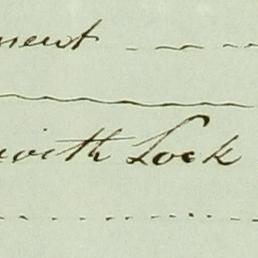 ment
with Lock